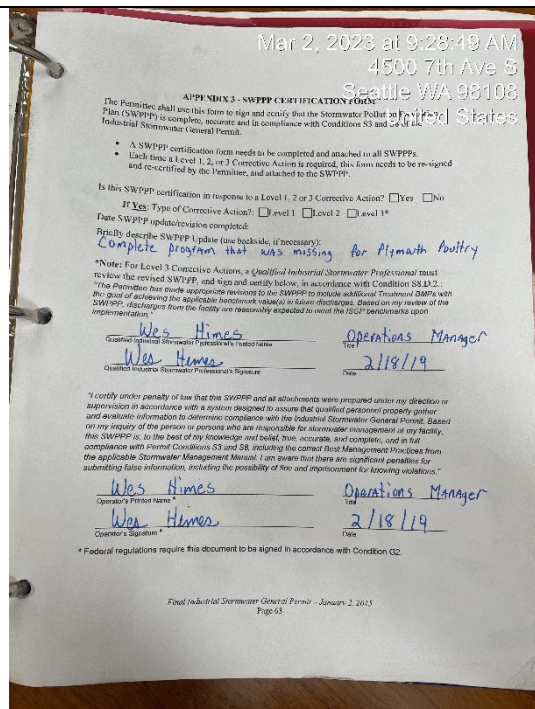 Mar 2, 2023 at 9:28:49 AM
4500 7th Ave S
Seattle WA 98108
United States
APPENDIX 3 - SWPPP CERTIFICATION FORM
The Permittee shall use this form to sign and certify that the Stormwater Pollution
Plan (SWPPP) is complete, accurate and in compliance with Conditions S3 and S8 of the
Industrial Stormwater General Permit.
• A SWPPP certification form needs to be completed and attached to all SWPPPs.
• Each time a Level 1, 2, or 3 Corrective Action is required, this form needs to be re-signed
and re-certified by the Permittee, and attached to the SWPPP.
Is this SWPPP certification in response to a Level 1, 2 or 3 Corrective Action? ☐Yes ☐No
If Yes: Type of Corrective Action?: ☐Level 1 ☐Level 2 ☐Level 3*
Date SWPPP update/revision completed:
Briefly describe SWPPP Update (use backside, if necessary):
Complete program that was missing for Plymouth Poultry
*Note: For Level 3 Corrective Actions, a Qualified Industrial Stormwater Professional must
review the revised SWPPP, and sign and certify below, in accordance with Condition S8.D.2.:
"The Permittee has made appropriate revisions to the SWPPP to include additional Treatment BMPs with
the goal of achieving the applicable benchmark value(s) in future discharges. Based on my review of the
SWPPP, discharges from the facility are reasonably expected to meet the ISGP benchmarks upon
implementation."
Wes Himes Operations Manager
Qualified Industrial Stormwater Professional's Printed Name Title
Wes Himes 2/18/19
Qualified Industrial Stormwater Professional's Signature Date
"I certify under penalty of law that this SWPPP and all attachments were prepared under my direction or
supervision in accordance with a system designed to assure that qualified personnel properly gather
and evaluate information to determine compliance with the Industrial Stormwater General Permit. Based
on my inquiry of the person or persons who are responsible for stormwater management at my facility,
this SWPPP is, to the best of my knowledge and belief, true, accurate, and complete, and in full
compliance with Permit Conditions S3 and S8, including the correct Best Management Practices from
the applicable Stormwater Management Manual. I am aware that there are significant penalties for
submitting false information, including the possibility of fine and imprisonment for knowing violations."
Wes Himes Operations Manager
Operator's Printed Name * Title
Wes Himes 2/18/19
Operator's Signature * Date
* Federal regulations require this document to be signed in accordance with Condition G2.
Final Industrial Stormwater General Permit – January 2, 2015
Page 63